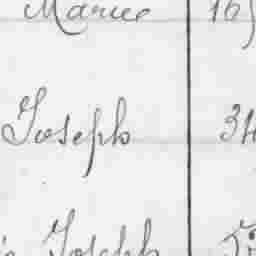 Marie 16
Joseph 34
Joseph